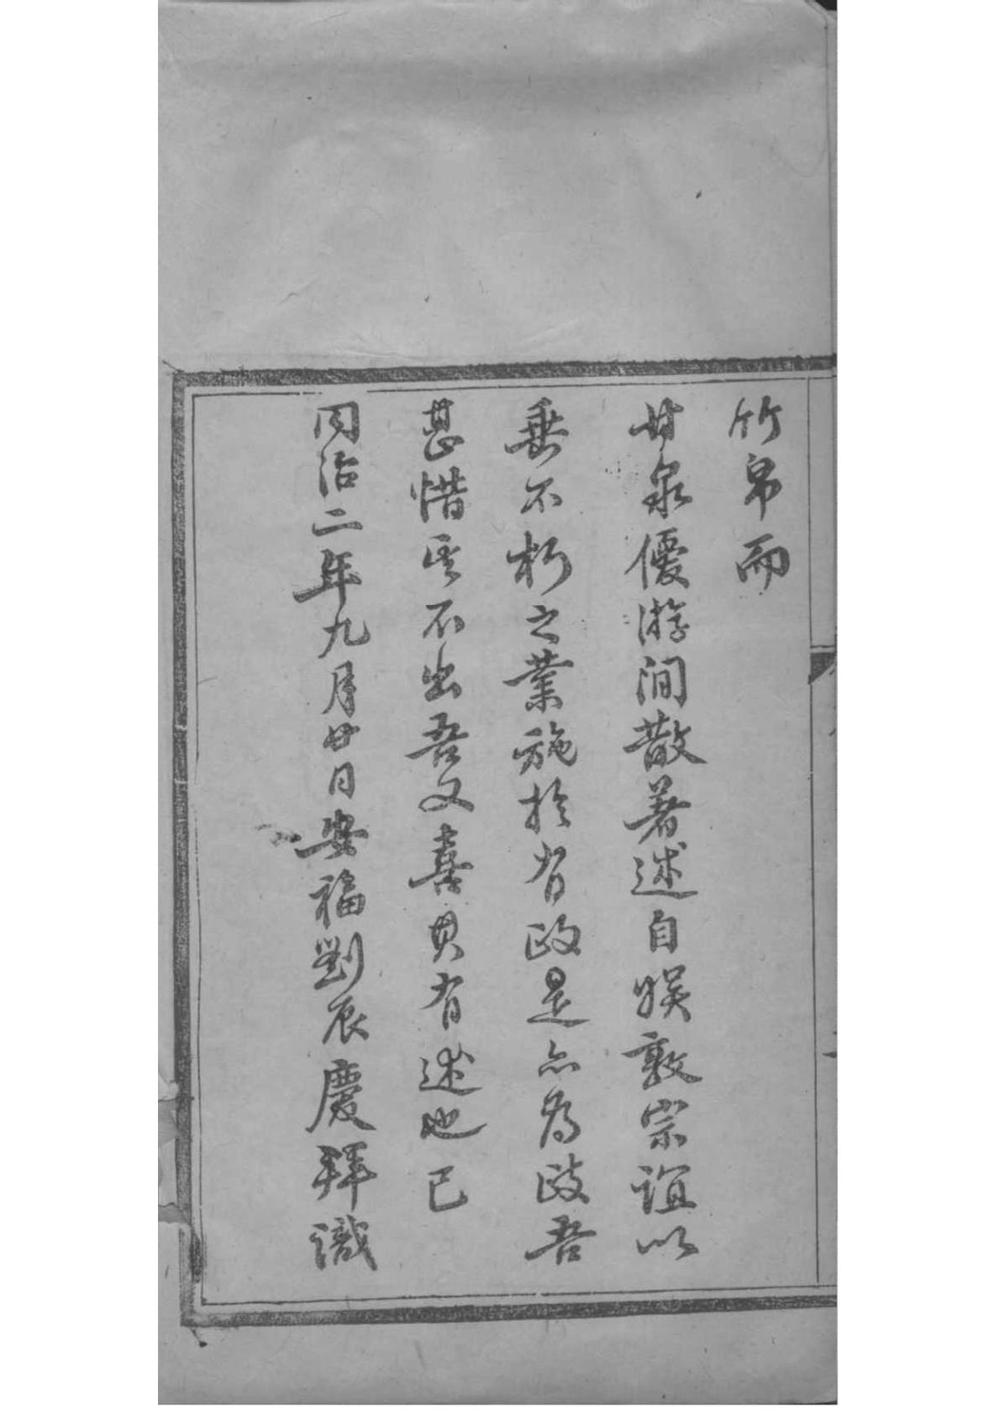 竹帛而
甘泉優游間散著述自娛敦宗誼以
垂不朽之業施於有政是亦為政吾
甚惜其不出吾又喜其有述也已
同治二年九月廿日安福劉辰慶拜識